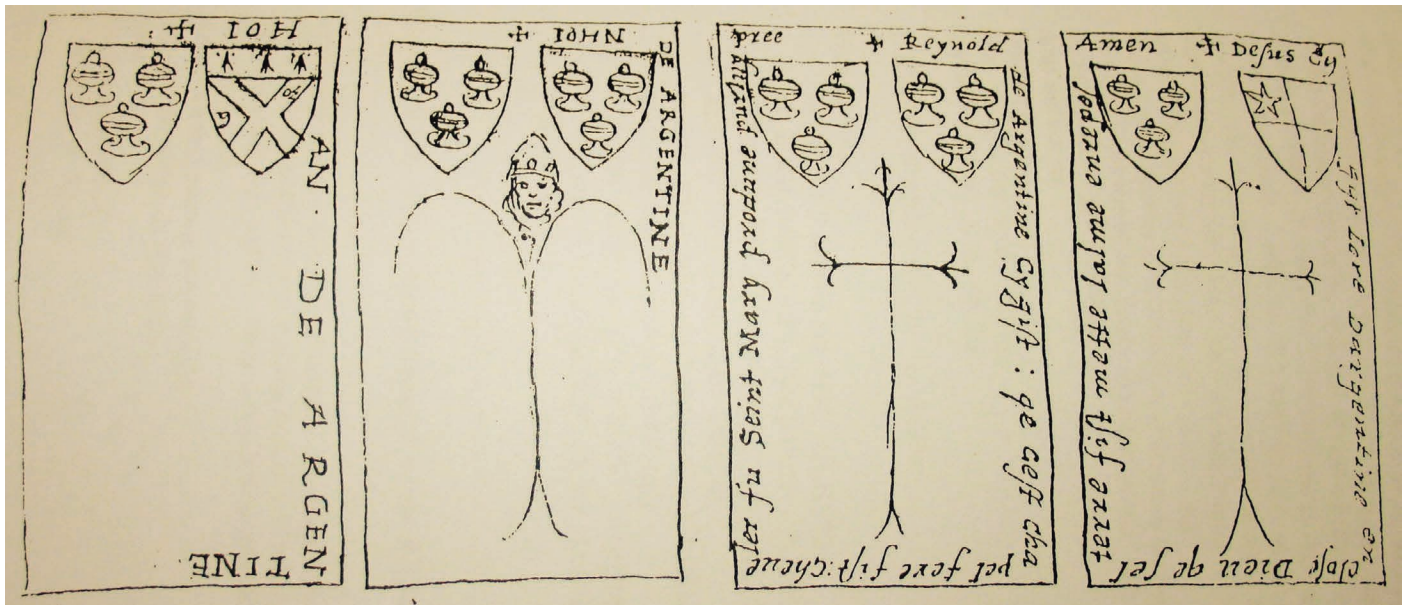 ✠ IOH
AN DE ARGEN
TINE
✠ IOHN
DE ARGENTINE
✠ Reynold
de Argentine Cygist : qe cest cha
pel fere fist: Cheue
ler fu Seint Mary
pree
✠ Desus Cy
gist Lore Dargentine en
Dieu qe fet
terre fist mette
Amen